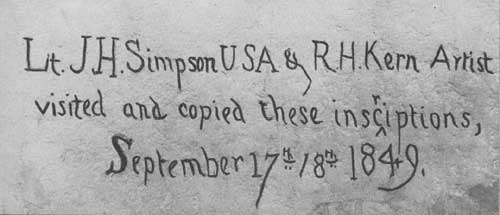 Lt. J.H. Simpson USA & R.H. Kern Artist
visited and copied these inscriptions,
September 17th 18th 1849.